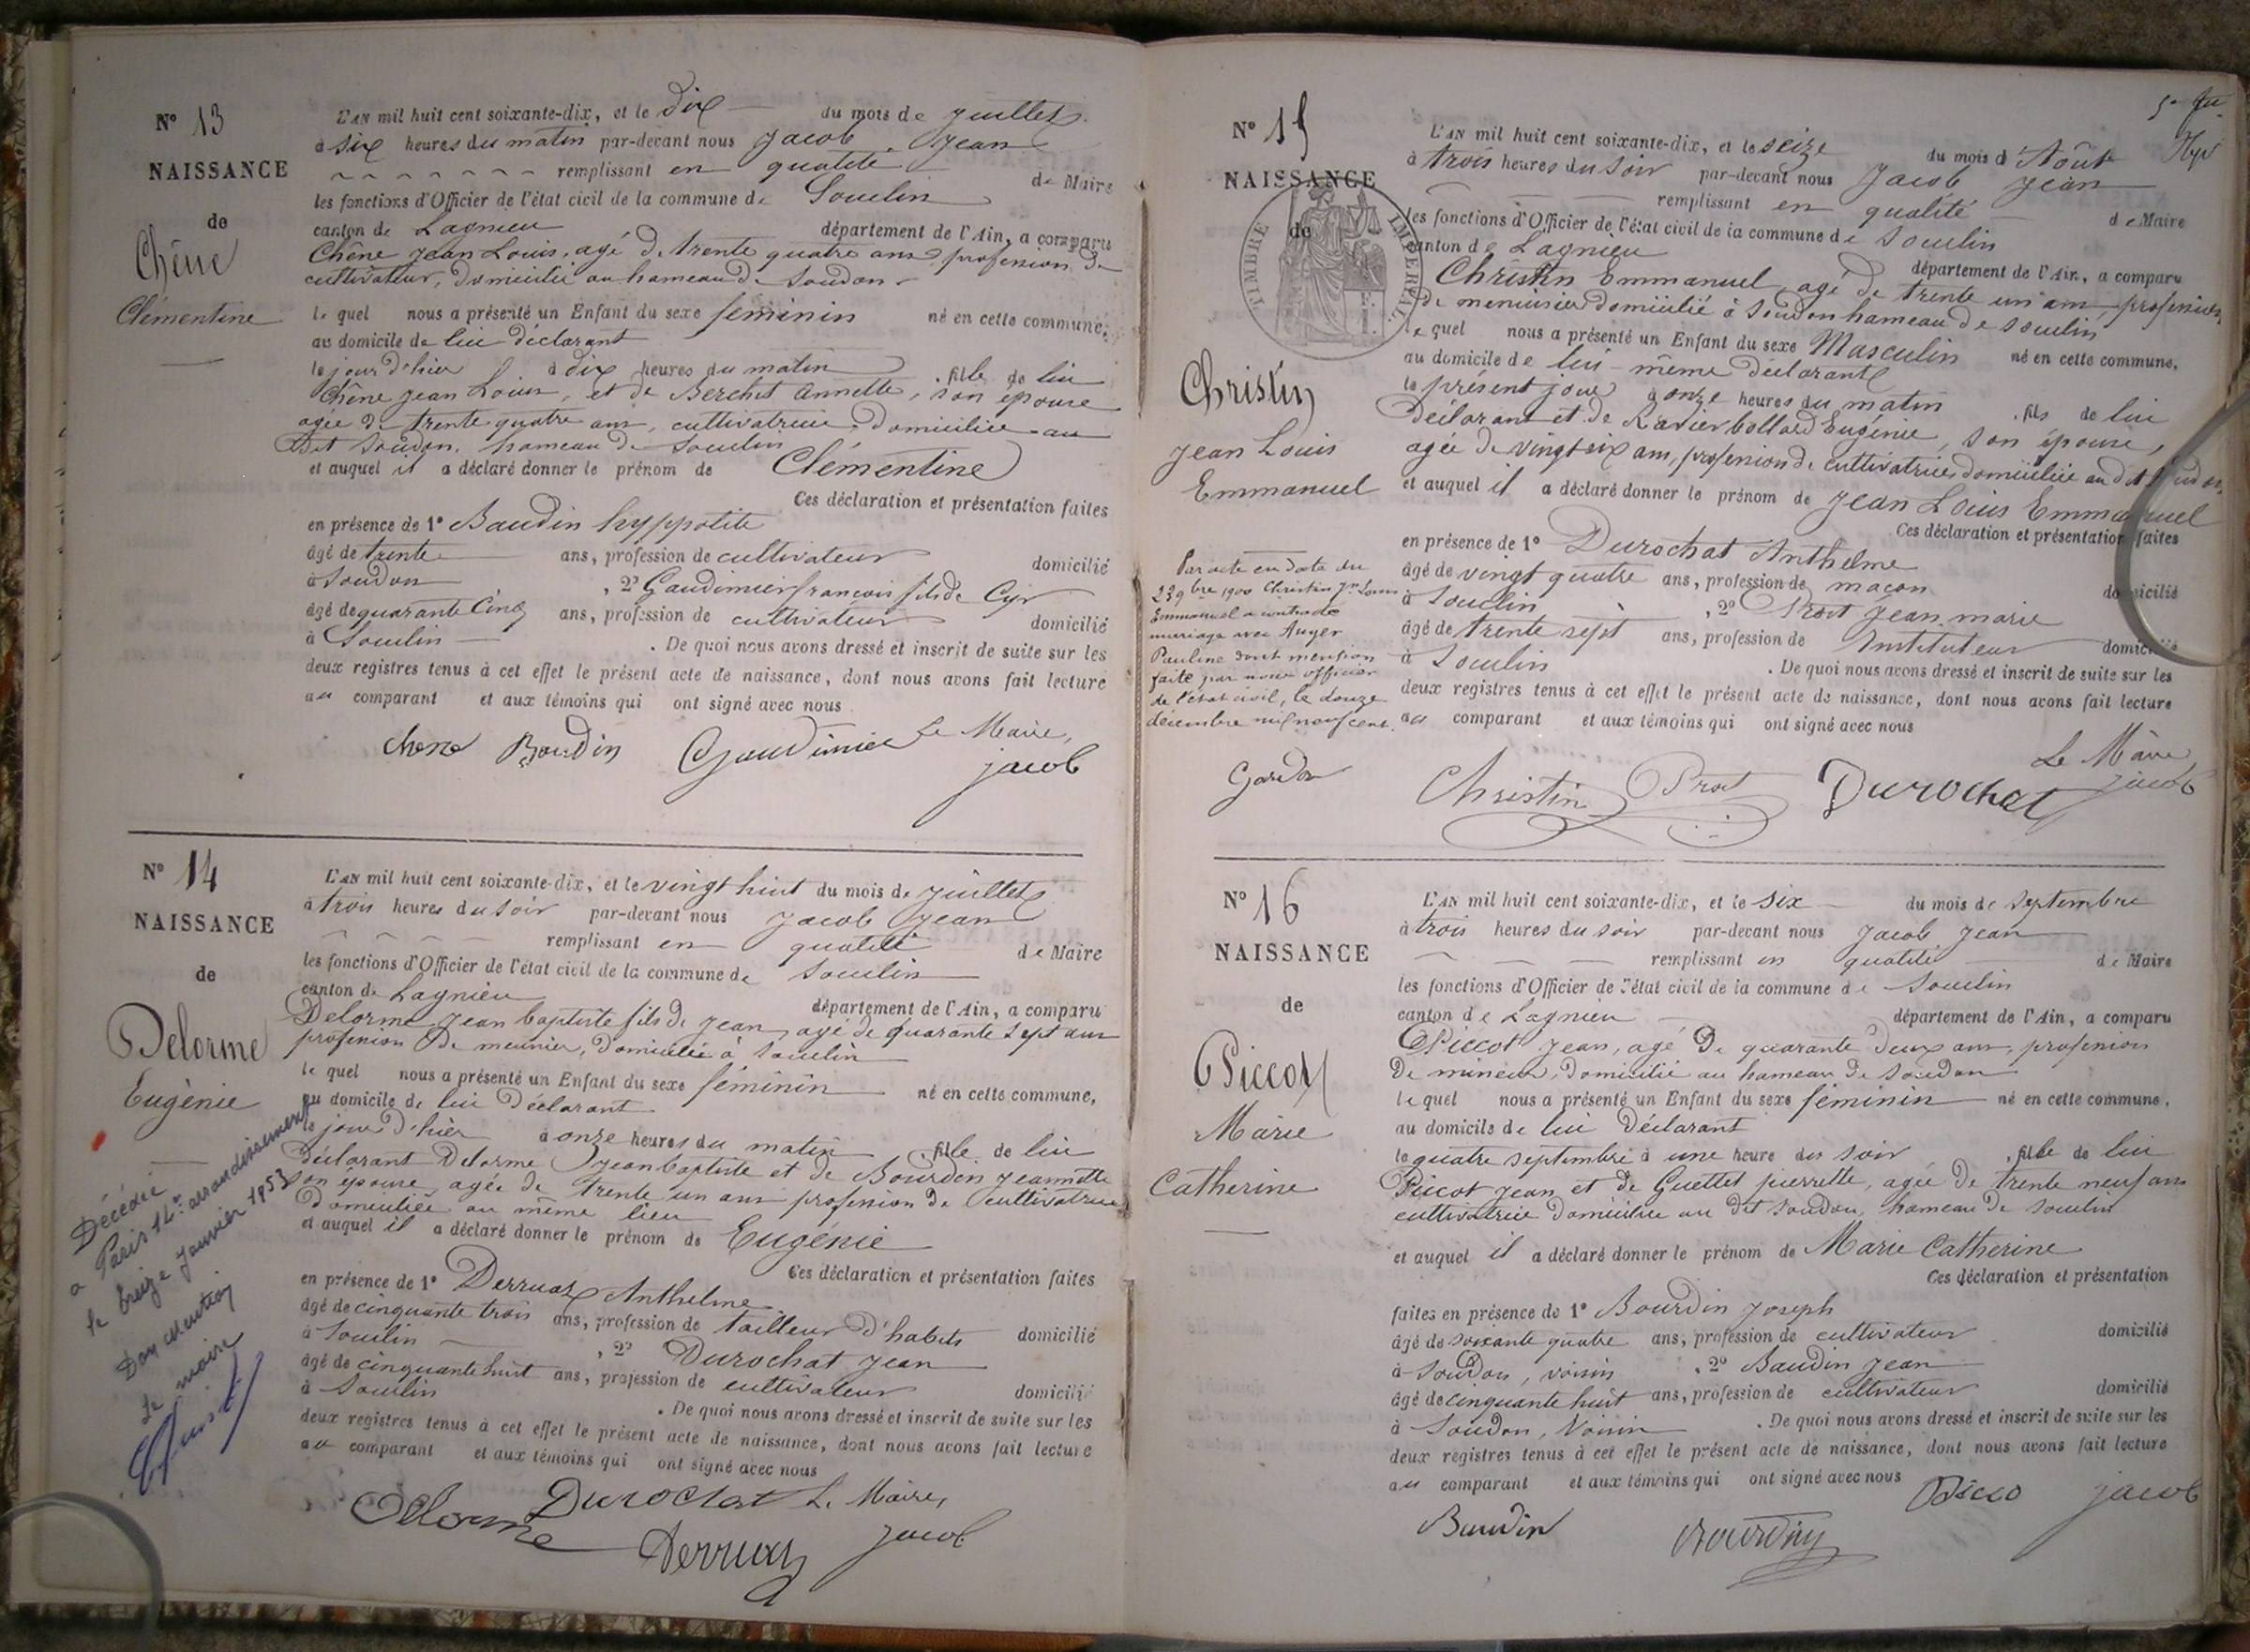 N° 13
NAISSANCE
de
Chêne
Clémentine
L'AN mil huit cent soixante-dix, et le dix du mois de Juillet
à six heures du matin par-devant nous Jacob Jean
remplissant en qualité de Maire
les fonctions d'Officier de l'état civil de la commune de Souclin
canton de Lagnieu département de l'Ain, a comparu
Chêne Jean Louis, agé de trente quatre ans, profession de
cultivateur, domicilié au hameau de Soudon
le quel nous a présenté un Enfant du sexe féminin né en cette commune,
au domicile de lui déclarant
le jour d'hier à dix heures du matin, fille de lui
Chêne Jean Louis, et de Berchet Annette, son épouse
agée de trente quatre ans, cultivatrice, domiciliée au
dit Soudon, hameau de Souclin
et auquel il a déclaré donner le prénom de Clémentine
Ces déclaration et présentation faites
en présence de 1° Baudin hyppolite
âgé de trente ans, profession de cultivateur domicilié
à Soudon, 2° Gaudimier françois fils de Cyr
âgé de quarante Cinq ans, profession de cultivateur domicilié
à Souclin. De quoi nous avons dressé et inscrit de suite sur les
deux registres tenus à cet effet le présent acte de naissance, dont nous avons fait lecture
au comparant et aux témoins qui ont signé avec nous
Chene Baudin Gaudimier Le Maire,
Jacob
N° 14
NAISSANCE
de
Delorme
Eugènie
Décédée
à Paris 14e arrondissement
le treize Janvier 1953
Dont mention
Le maire
L'AN mil huit cent soixante-dix, et le vingt huit du mois de Juillet
à trois heures du soir par-devant nous Jacob Jean
remplissant en qualité de Maire
les fonctions d'Officier de l'état civil de la commune de Souclin
canton de Lagnieu département de l'Ain, a comparu
Delorme Jean baptiste fils de Jean, agé de quarante sept ans
profession de meunier, domicilié à Souclin
le quel nous a présenté un Enfant du sexe féminin né en cette commune,
au domicile de lui déclarant
le jour d'hier à onze heures du matin, fille de lui
déclarant Delorme Jean baptiste et de Bourdin Jeannette
son épouse, agée de trente un ans profession de cultivatrice
domiciliée au même lieu
et auquel il a déclaré donner le prénom de Eugénie
Ces déclaration et présentation faites
en présence de 1° Derruaz Anthelme
âgé de cinquante trois ans, profession de tailleur d'habits domicilié
à Souclin, 2° Durochat Jean
âgé de cinquante huit ans, profession de cultivateur domicilié
à Souclin. De quoi nous avons dressé et inscrit de suite sur les
deux registres tenus à cet effet le présent acte de naissance, dont nous avons fait lecture
au comparant et aux témoins qui ont signé avec nous
Delorme Durochat Le Maire,
Derruaz Jacob
N° 15
NAISSANCE
de
TIMBRE IMPERIAL
Christin
Jean Louis
Emmanuel
Par acte en date du
23 9bre 1900 Christin Jn Louis
Emmanuel a contracté
mariage avec Auger
Pauline dont mention
faite par nous officier
de l'état civil, le douze
décembre mil neuf cent.
L'AN mil huit cent soixante-dix, et le seize du mois d'Août
à trois heures du soir par-devant nous Jacob Jean
remplissant en qualité de Maire
les fonctions d'Officier de l'état civil de la commune de Souclin
canton de Lagnieu département de l'Ain, a comparu
Christin Emmanuel, agé de trente un ans, profession
de menuisier domicilié à Soudon hameau de Souclin
le quel nous a présenté un Enfant du sexe Masculin né en cette commune,
au domicile de lui-même déclarant
le présent jour à onze heures du matin, fils de lui
déclarant et de Ravier bollard Eugénie, son épouse,
agée de vingt six ans, profession de cultivatrice domiciliée au dit Soudon
et auquel il a déclaré donner le prénom de Jean Louis Emmanuel
Ces déclaration et présentation faites
en présence de 1° Durochat Anthelme
âgé de vingt quatre ans, profession de maçon domicilié
à Souclin, 2° Prost Jean marie
âgé de trente sept ans, profession de Instituteur domicilié
à Souclin. De quoi nous avons dressé et inscrit de suite sur les
deux registres tenus à cet effet le présent acte de naissance, dont nous avons fait lecture
au comparant et aux témoins qui ont signé avec nous
Le Maire
Christin Prost Durochat Jacob
N° 16
NAISSANCE
de
Piccot
Marie
Catherine
L'AN mil huit cent soixante-dix, et le six du mois de Septembre
à trois heures du soir par-devant nous Jacob Jean
remplissant en qualité de Maire
les fonctions d'Officier de l'état civil de la commune de Souclin
canton de Lagnieu département de l'Ain, a comparu
Piccot Jean, agé de quarante deux ans, profession
de mineur, domicilié au hameau de Soudon
le quel nous a présenté un Enfant du sexe féminin né en cette commune,
au domicile de lui déclarant
le quatre septembre à une heure du soir, fille de lui
Piccot Jean et de Guettet pierrette, agée de trente neuf ans
cultivatrice domiciliée au dit Soudon, hameau de Souclin
et auquel il a déclaré donner le prénom de Marie Catherine
Ces déclaration et présentation
faites en présence de 1° Bourdin Joseph
âgé de soixante quatre ans, profession de cultivateur domicilié
à Soudon, voisin, 2° Baudin Jean
âgé de cinquante huit ans, profession de cultivateur domicilié
à Soudon, Voisin. De quoi nous avons dressé et inscrit de suite sur les
deux registres tenus à cet effet le présent acte de naissance, dont nous avons fait lecture
au comparant et aux témoins qui ont signé avec nous
Picco Jacob
Baudin Bourdin